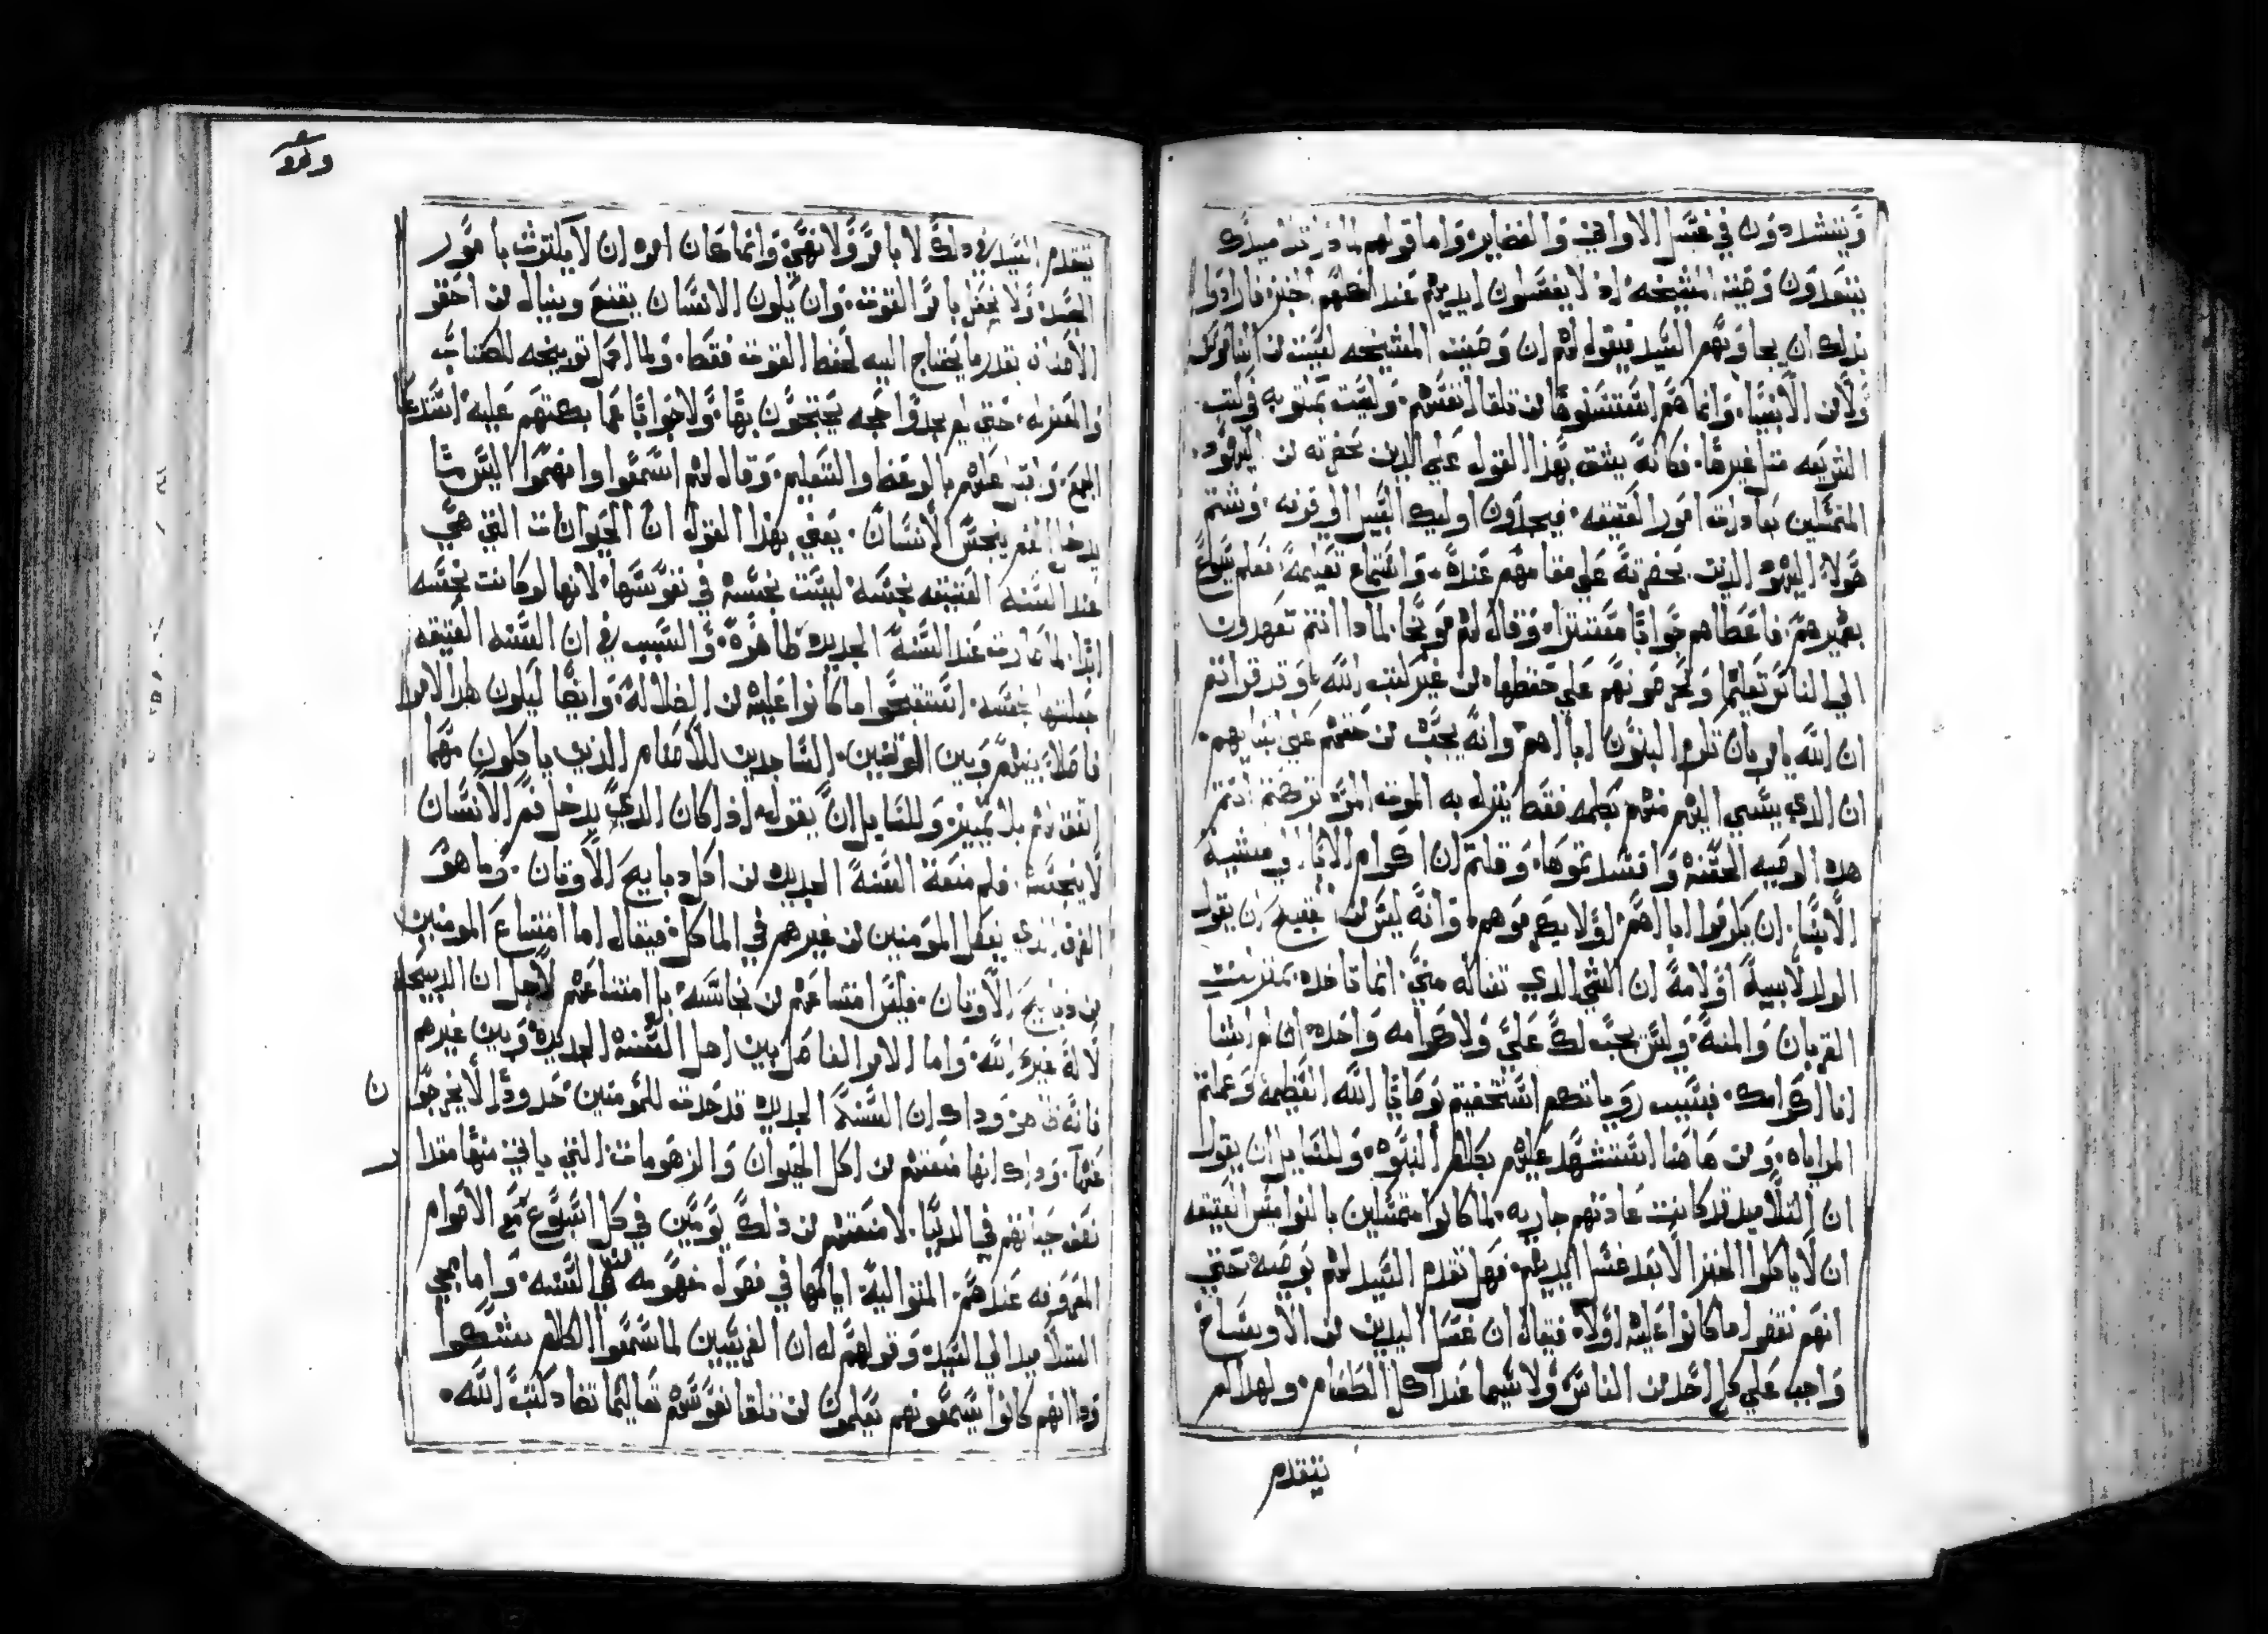 ويتشددون في غسل الاواني والغضاير واما قولهم لماذا تلاميدك
يتعدون وصية المشيخه اذ لا يغسلون ايديهم عند اكلهم الخبز فارادوا
بذلك ان يجاوبهم السيد فيقول لهم ان وصيت المشيخه ليست من الناموس
ولا من الانبيا وانما هم استسنوها من تلقا انفسهم وليست مكتوبه في كتب
الشريعه مثل غيرها فكانه يشق بهذا القول علي الدين بحضرته من اليهود
المتمثلين بعادات امور العتيقه فيجدون اوليك السبيل الي قرفه وشتم
هولا اليهود الدين بحضرته علي مقامهم عنده واستماع تعليمه فعلم يسوع
بضميرهم فاعطاهم جوابا مقنعا وقال لهم موبخا لمادا انتم تعهدون
الي الناس تعليما وتحرصونهم علي حفظها من غير كتب الله وقد قراتم
ان الله يامر بان تكرم البنون اباهم وانه يجب من حقهم علي ابنايهم
ان الدي يسي اليهم منهم بكلمه فقط ينزل به الموت المر تركتم انتم
هده الوصيه الحسنه وافسدتموها وقلتم ان اكرام الابا في مشية
الابنا ان يكرموا اباهم او لا يكرموهم وانه ليس من القبيح ان يقول
الولد لابيه او لامه ان الشي الدي تناله مني انما تاخده بمنزلت
القربان والمنه وليس يجب لك علي ولا كرامه واحده ان لم اشا
انا اكرامك فبسبب روياتكم استخفيتم بوصايا الله العظيمه وعملتم
المراياه ومن هاهنا استشهد عليهم بكلام النبوه وللقايل ان يقول
ان التلاميد قد كانت عادتهم جاريه لما كانوا متمثلين بالنواميس العتيقه
ان لا ياكلوا الخبز الا بعد غسل ايديهم فهل تقدم السيد لهم بوصيه حتي
انهم نقضوا ما كانوا عليه اولا فيقال ان غسل اليدين من الاوساخ
واجب علي كل احد من الناس ولا سيما عند اكل الطعام ولهدا لم
يتقدم
يتقدم السيد في دلك لا بامر ولا نهي وانما كان امره ان لا يلتوث بامور
الجسد ولا يحفل بامر القوت وان يكون الانسان يقنع وينال من احقر
الاصناف بقدر ما يحتاج اليه لحفظ القوت فقط ولما اكمل توبيخه للكتاب
والمعتزله حتي لم يجدوا حجه يحتجون بها ولا جوابا عما بكتهم عليه استدعا
الجمع واقبل عليهم بالوعظ والتعليم وقال لهم اسمعوا وافهموا ليس ما
يدخل الفم ينجس الانسان يعني بهدا القول ان الحيوانات التي هي
عند السنه العتيقه نجسه ليست نجسه في نفوسها لانها لو كانت نجسه
ابدا لما صارت عند السنه الجديده طاهره والسبب في ان السنه العتيقه
جعلتها نجسه استقبحوا ما كانوا عليه من الضلاله وايضا ليكون هدا الامر
فاصلا بينهم وبين الوثنيين الساجدين للاصنام الدين ياكلون مهما
اتفق لهم بلا تمييز وللسايل ان يقول ادا كان الدي يدخل فم الانسان
لا ينجسه فلم منعة السنة الجديده من اكل دبايح الاوتان وما هو
الفرق الدي يفصل المومنين من غيرهم في الماكل فيقال اما امتناع المومنين
من دبايح الاوتان فليس امتناعهم من نجاسته بل امتناعهم لاجل ان الدبيحه
لاله غير الله واما الامر الفاصل بين اهل السنه الجديده وبين غيرهم
فانه ظاهر وداك ان السنة الجديده قد حدت للمومنين حدودا لا يخرجوا ن
عنها وداك انها منعتهم من اكل الحيوان والزهومات التي ياتي منها مقدار
نصف حياتهم في الدنيا لا منعتهم من ذلك يومين في كل اسبوع مع الاصوام
المعروفه عندهم المتواليه ايامها في فصول مفهومه من السنه واما مجي
التلاميد الي السيد وقولهم له ان الفريسيين لما سمعوا الكلام تشككوا
ودا انهم كانوا يسمعونهم يعلمون من تلقا نفوسهم تعاليما تضاد كتب الله